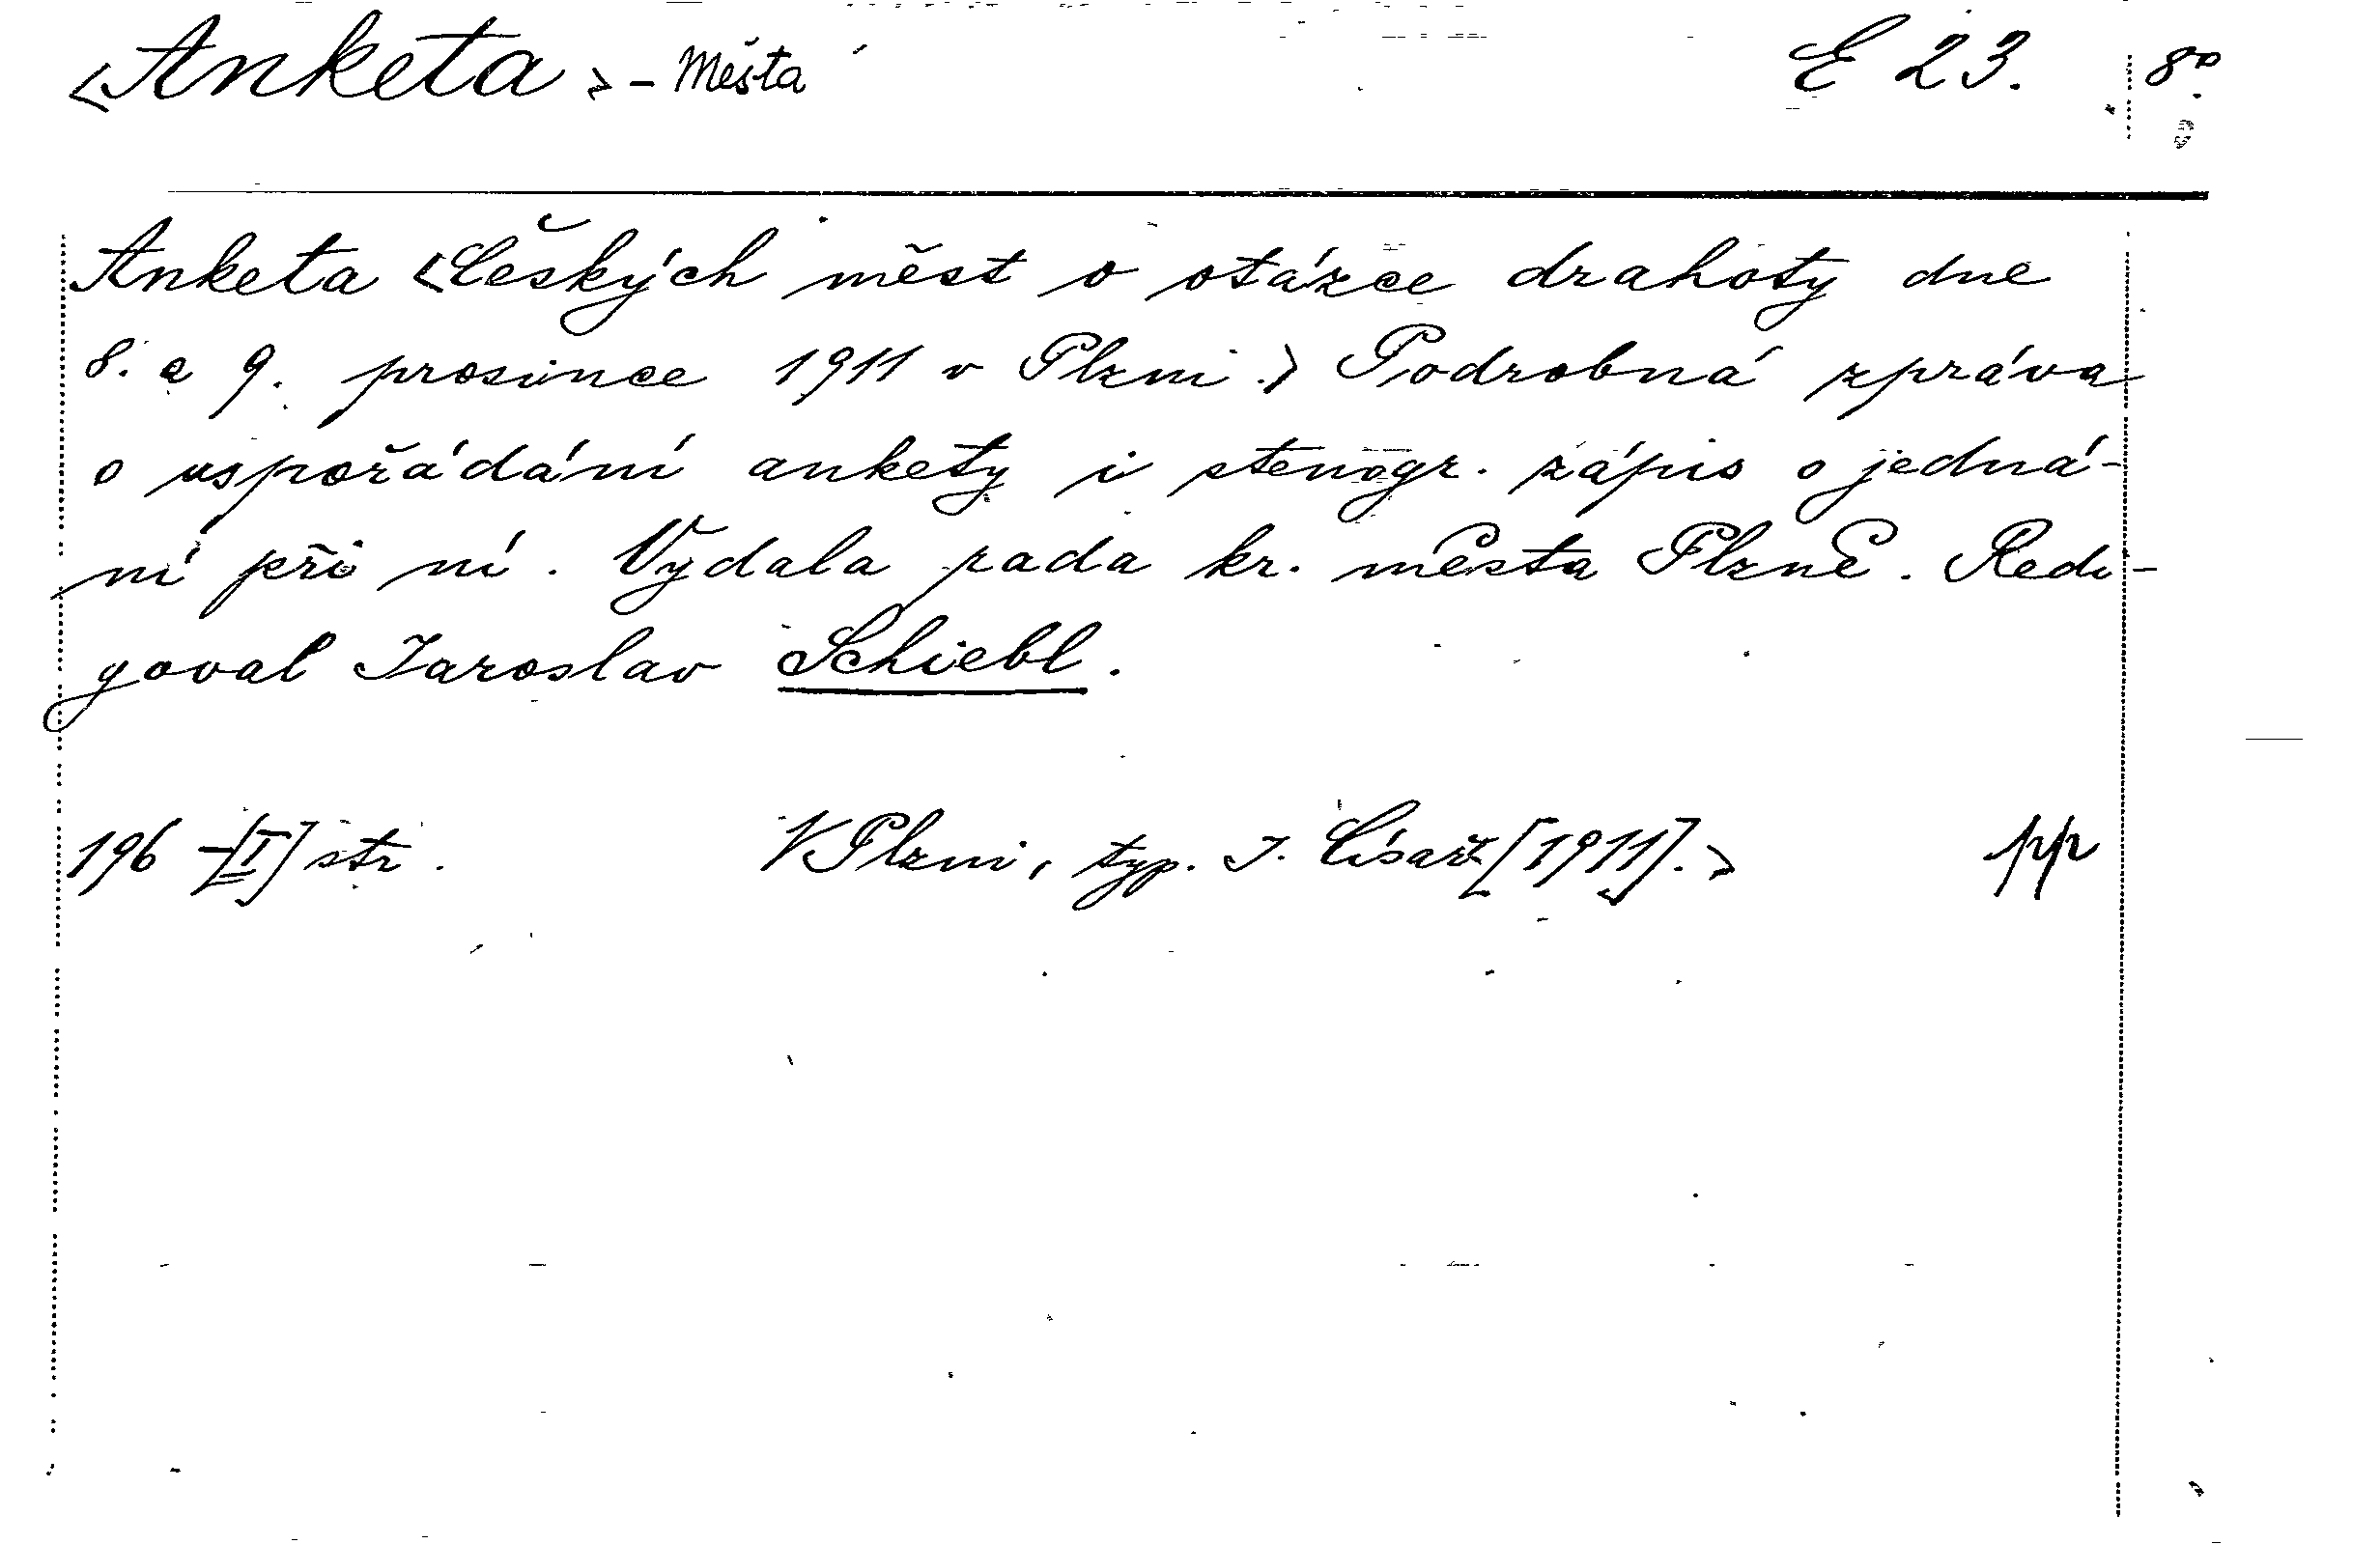 <Anketa> - Města E 23. 8°
Anketa <Českých měst o otázce drahoty dne
8. a 9. prosince 1911 v Plzni.> Podrobná zpráva
o uspořádání ankety i stenogr. zápis o jedná-
ní při ní. Vydala rada kr. města Plzně. Redi-
goval Jaroslav Schiebl.
196 -[I] str. V Plzni, typ. J. Císař [1911].> pp